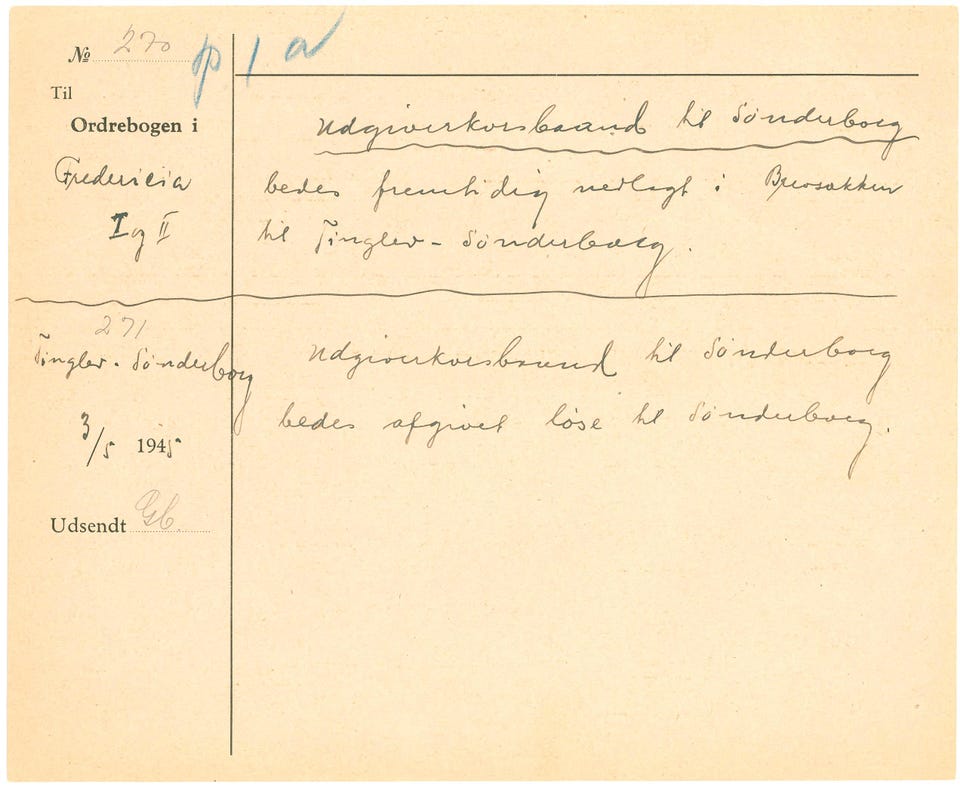 № 270
p 1 a
Til
Ordrebogen i
Fredericia
I og II
Udgiverkorsbaand til Sønderborg
bedes fremtidig nedlagt i Brevsækken
til Tinglev - Sønderborg.
271
Tinglev - Sønderborg
3/5 1945
Udsendt Gb.
Udgiverkorsbaand til Sønderborg
bedes afgivet løse til Sønderborg.